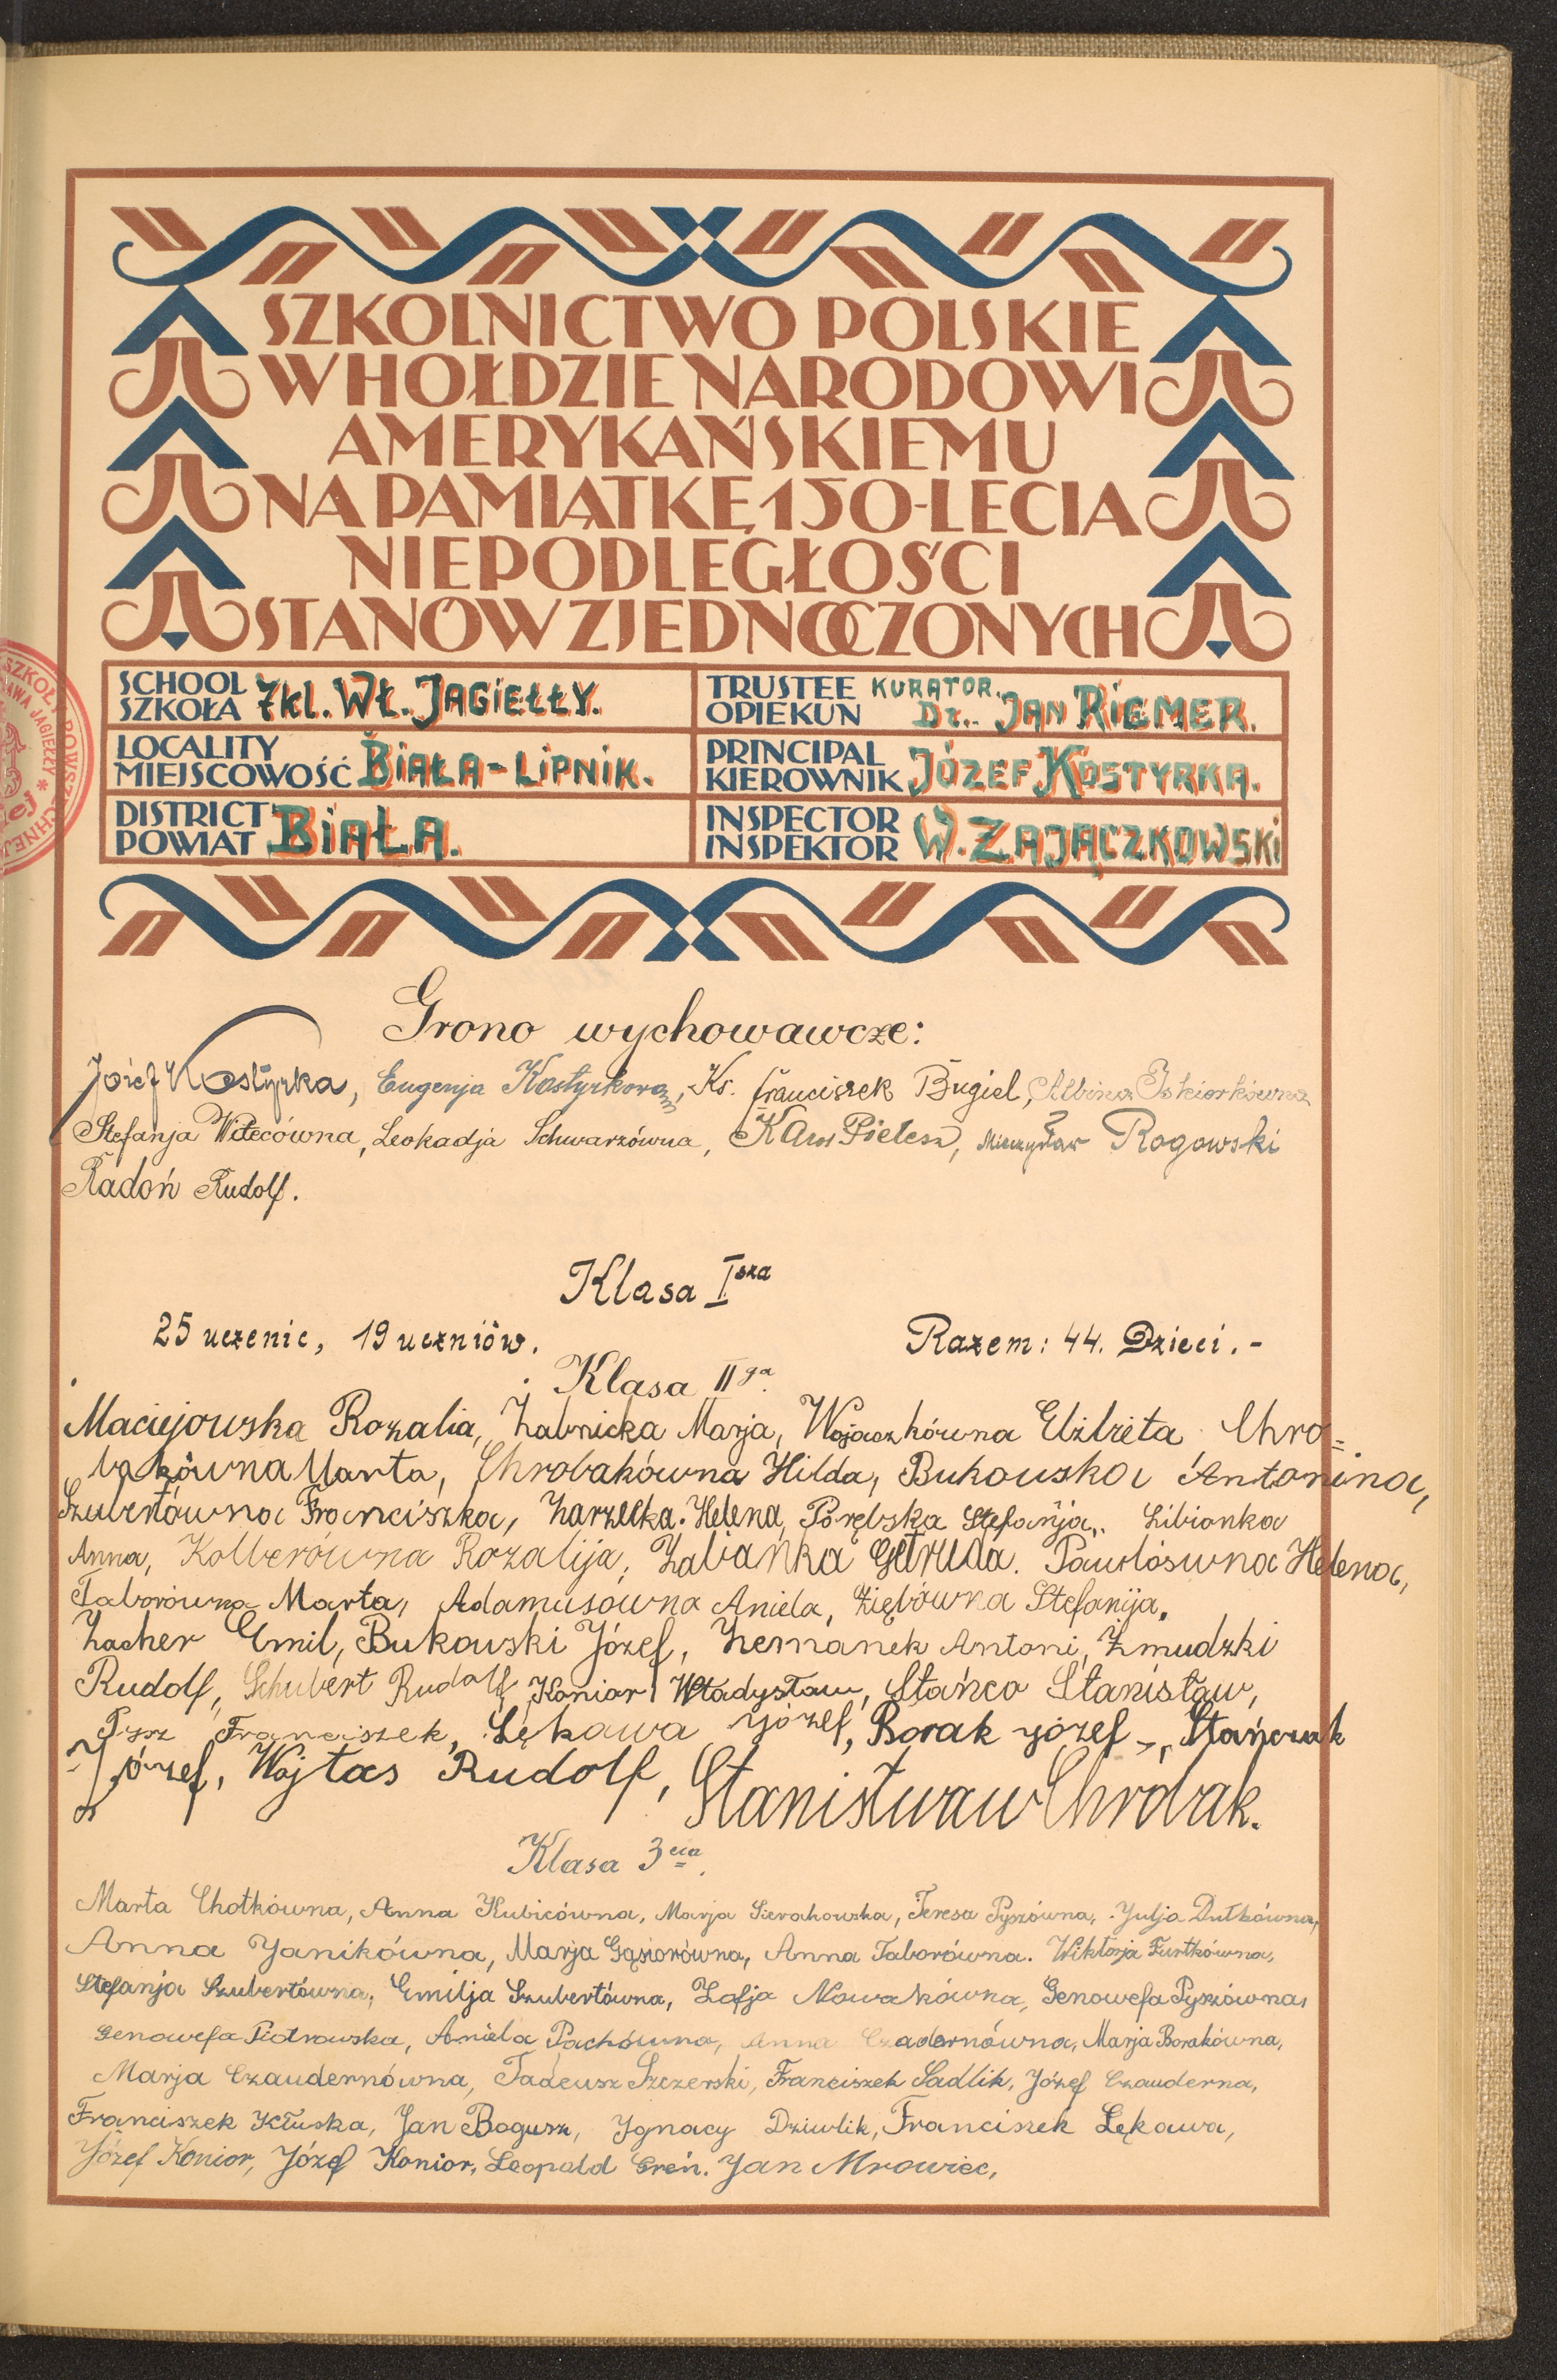 SZKOLNICTWO POLSKIE
W HOŁDZIE NARODOWI
AMERYKAŃSKIEMU
NA PAMIĄTKĘ 150-LECIA
NIEPODLEGŁOŚCI
STANÓW ZJEDNOCZONYCH
SCHOOL SZKOŁA 7kl. WŁ. JAGIEŁŁY.
TRUSTEE OPIEKUN KURATOR. Dr. JAN RIEMER.
LOCALITY MIEJSCOWOŚĆ BIAŁA-LIPNIK.
PRINCIPAL KIEROWNIK JÓZEF KOSTYRKA.
DISTRICT POWIAT BIAŁA.
INSPECTOR INSPEKTOR W. ZAJĄCZKOWSKI
Grono wychowawcze:
Józef Kostyrka, Eugenja Kostyrkowa, Ks. Franciszek Bugiel, Albina Iskiorkówna
Stefanja Witecówna, Leokadja Schwarzówna, Pielesz, Mieczysław Rogowski
Radoń Rudolf.
Klasa I sza
25 uczenic, 19 uczniów. Razem: 44. Dzieci.-
Klasa II ga.
Maciejowska Rozalia, Żabnicka Marja, Wojaczkówna Elżbieta Chro=
bakówna Marta, Chrobakówna Hilda, Bukowska Antonina,
Szubertówna Franciszka, Zarzecka Helena, Porębska Stefanja,. Libionka
Anna, Kolberówna Rozalija, Żabianka Getruda. Pawłówna Helena,
Taborówna Marta, Adamusówna Aniela, Ziębówna Stefanija.
Zacher Emil, Bukowski Józef, Zemanek Antoni, Żmudzki
Rudolf, Schubert Rudolf, Koniar Władysław, Stańco Stanisław,
Pysz Franciszek, Łękawa Józef, Borak Józef, Stańczak
Józef, Wojtas Rudolf, Stanisłwaw Chrobak.
Klasa 3 cia.
Marta Chotkówna, Anna Kubicówna, Marja Sierakowska, Teresa Pyszówna, Julja Dutkówna,
Anna Janikówna, Marja Gąsiorówna, Anna Taborówna. Wiktorja Furtkówna,
Stefanja Szubertówna, Emilja Szubertówna, Zofja Nowakówna, Genowefa Pyszówna,
Genowefa Piotrowska, Aniela Pachówna, Anna Czadernówna, Marja Borakówna,
Marja Czaudernówna, Tadeusz Szczerski, Franciszek Sadlik, Józef Czauderna,
Franciszek Kłuska, Jan Bogusz, Ignacy Dziwlik, Franciszek Łękawa,
Józef Konior, Józef Konior, Leopold Greń. Jan Mrowiec,